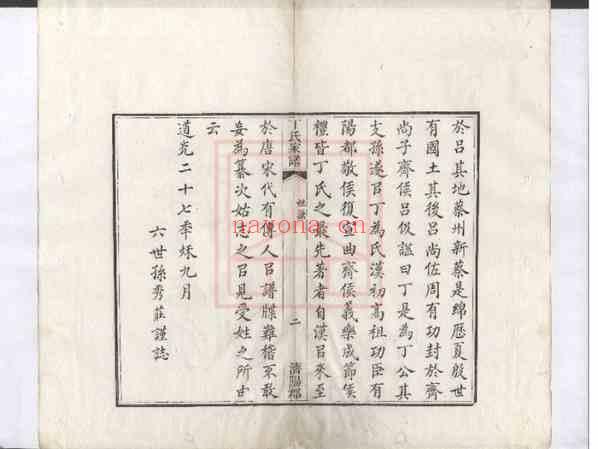 於呂其地蔡州新蔡是綿歷夏殷世
有國土其後呂尚佐周有功封於齊
尚子齊侯呂伋諡曰丁是為丁公其
支孫遂㠯丁為氏漢初高祖功臣有
陽都敬侯復宣曲齊侯義樂成節侯
禮皆丁氏之最先著者自漢㠯來至
丁氏家譜
二
濟陽郡
於唐宋代有傳人㠯譜牒難稽不敢
妄為纂次姑志之㠯見受姓之所由
云
道光二十七季秌九月
六世孫秀莊謹誌
nayona.cn